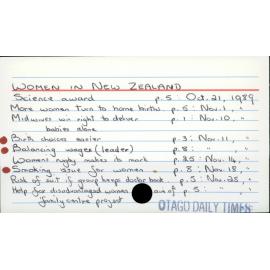 WOMEN IN NEW ZEALAND
Science award p.5 Oct.21, 1989.
More women turn to home births p.5: Nov.1, "
Midwives win right to deliver p.1: Nov.10, "
babies alone
Birth choices easier p.3: Nov.11, "
Balancing wages (leader) p.8: " "
Womens rugby makes its mark p.25: Nov.14, "
Smoking issue for women p.8: Nov.18, "
Risk of suit if group keeps doctor book p.5: Nov.25, "
Help for disadvantaged women of p.5: " "
family centre project
OTAGO DAILY TIMES